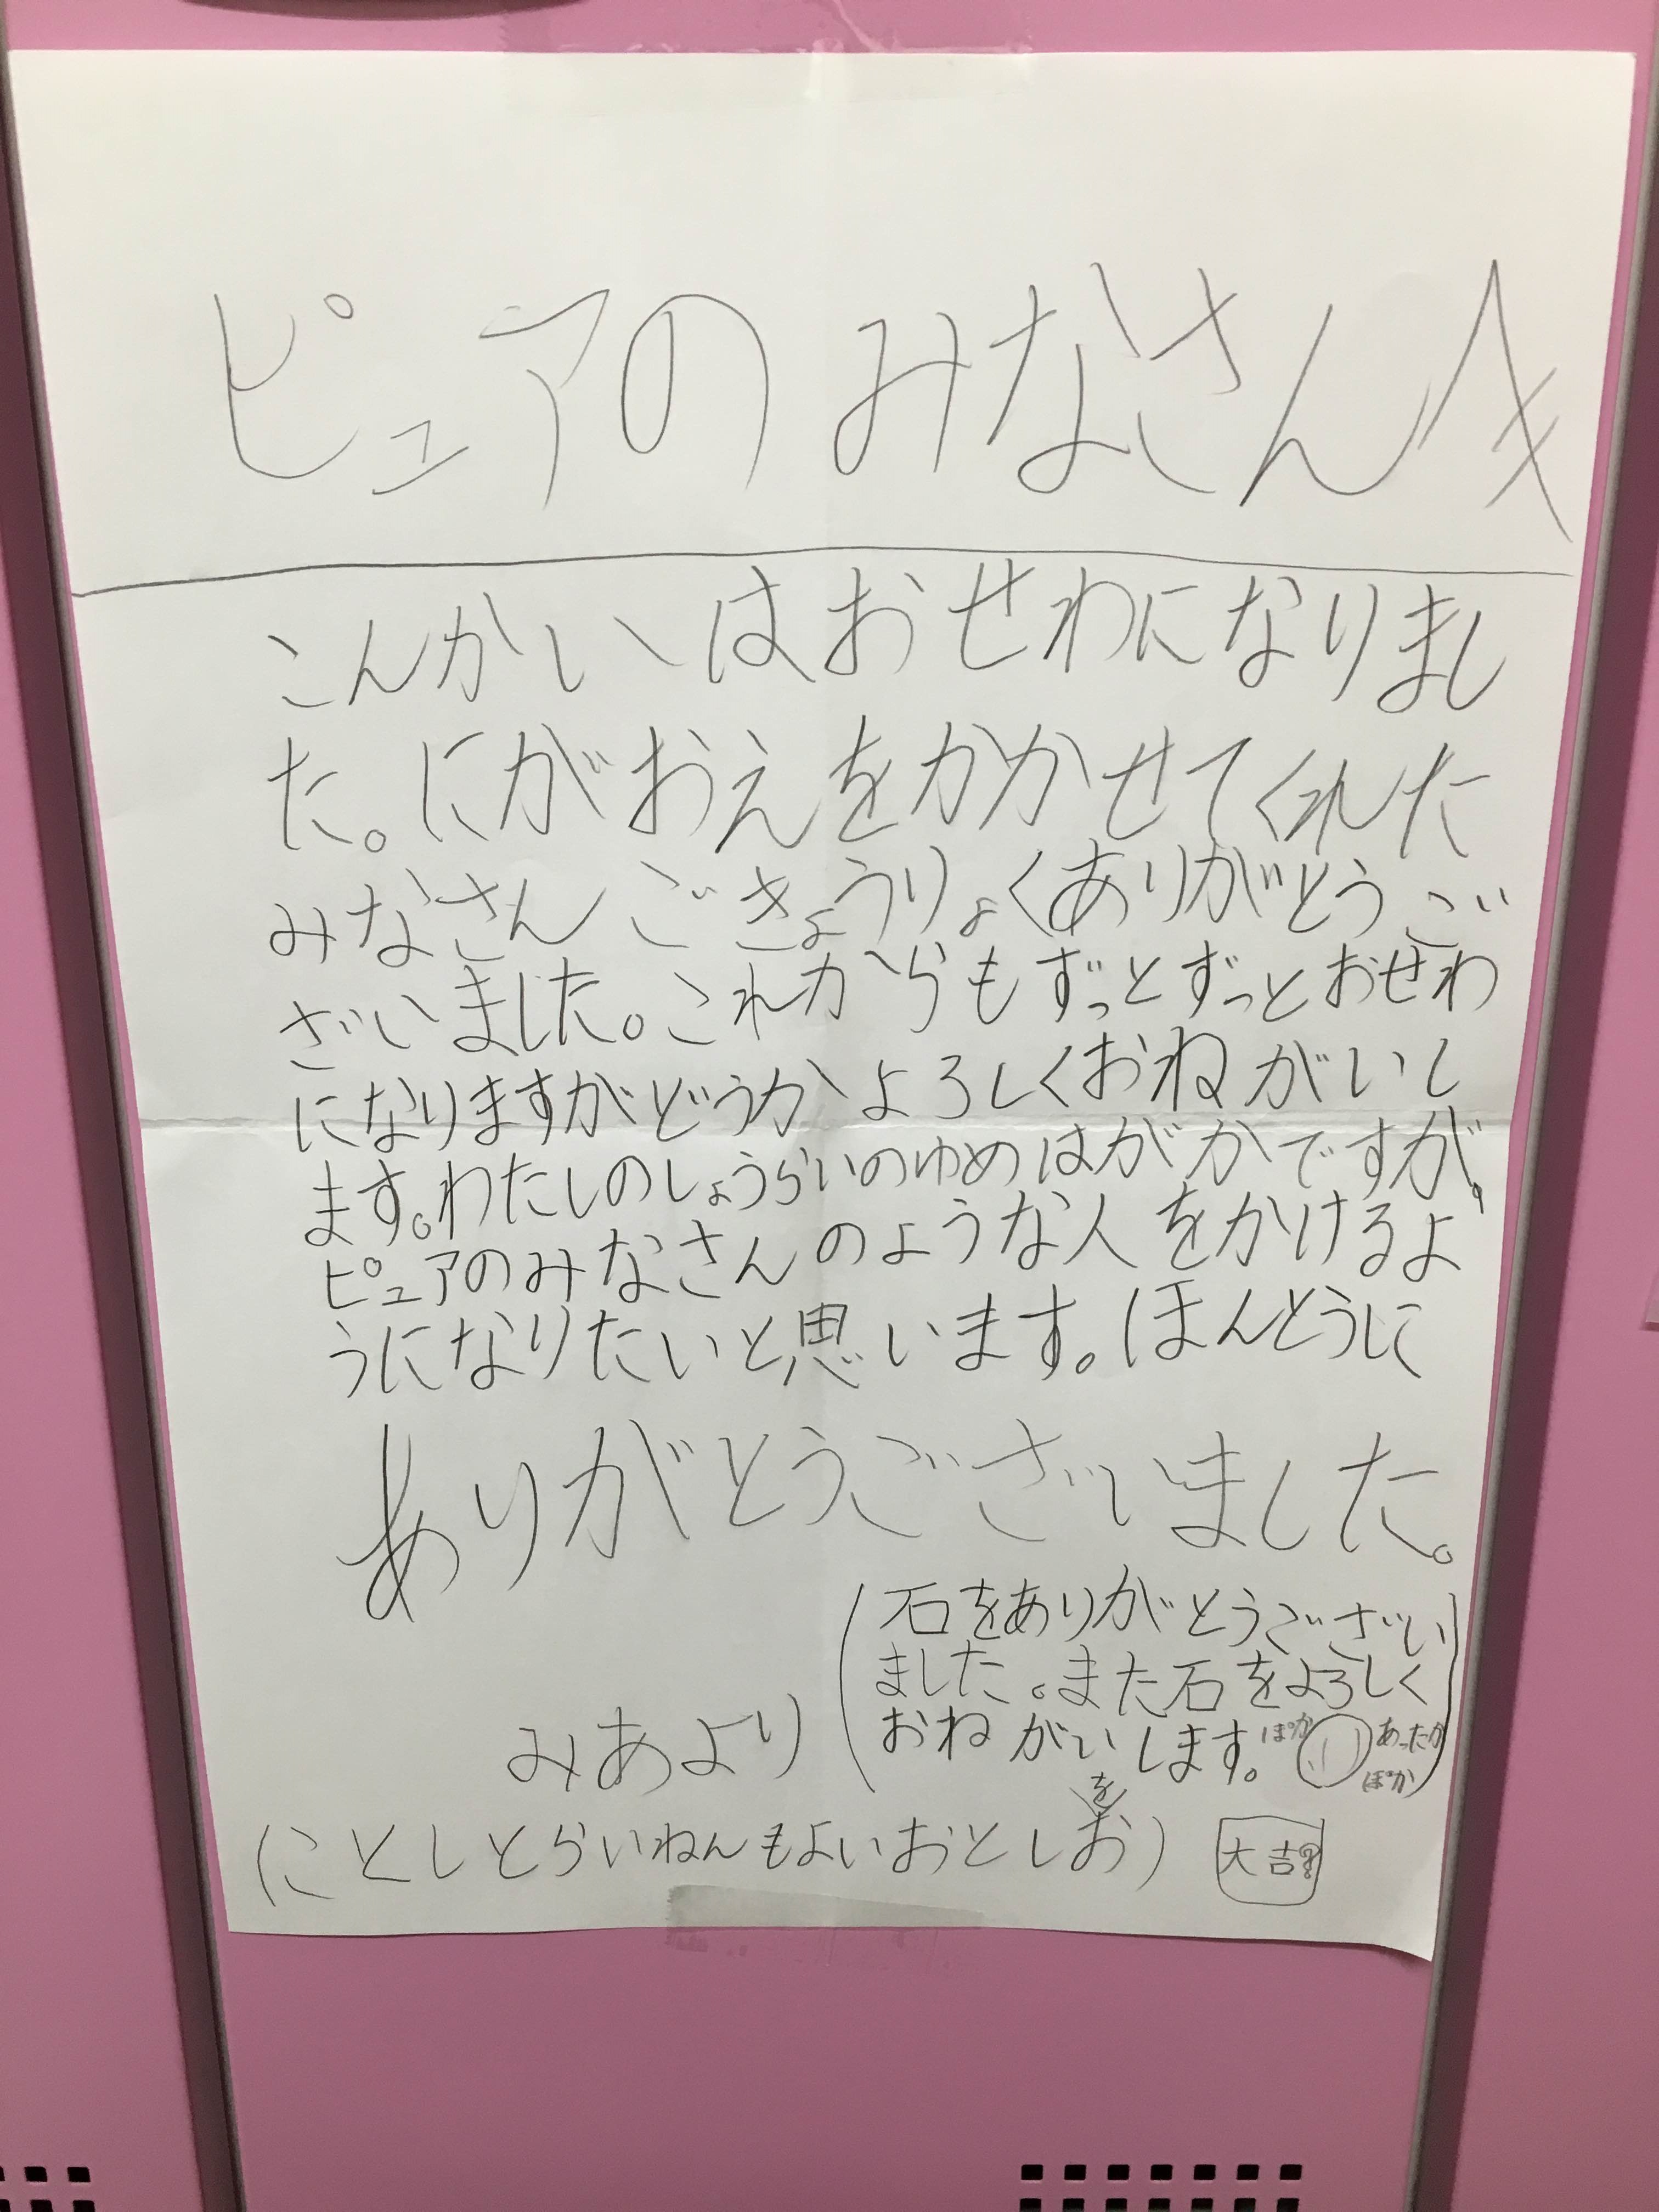 ピュアのみなさんへ
こんかいはおせわになりまし
た。にがおえをかかせてくれた
みなさんごきょうりょくありがとうご
ざいました。これからもずっとずっとおせわ
になりますがどうかよろしくおねがいし
ます。わたしのしょうらいのゆめはがかですが、
ピュアのみなさんのような人をかけるよ
うになりたいと思います。ほんとうに
ありがとうございました。
(石をありがとうござい
ました。また石をよろしく
おねがいします。ぽか あったか
ぽか)
みあより
を
(ことしとらいねんもよいおとしお)
大吉?